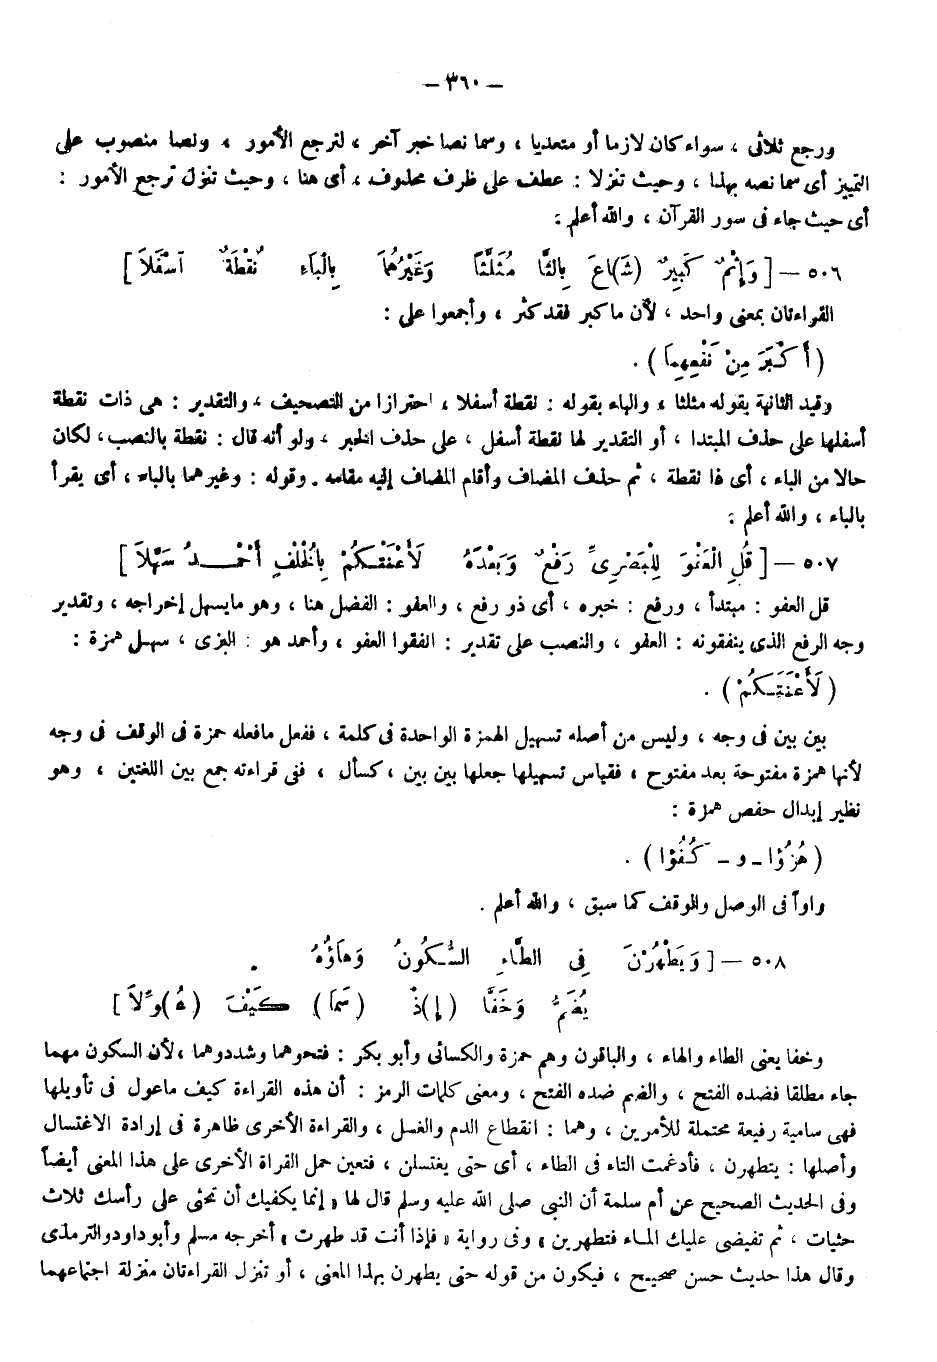 — ٣٦٠ —
ورجع ثلاثى ، سواء كان لازما أو متعديا ، وسما نصا خبر آخر ، لترجع الأمور ، ونصا منصوب على
التمييز أى سما نصه بهذا ، وحيث تنزلا : عطف على ظرف محذوف ، أى هنا ، وحيث تنزل ترجع الأمور :
أى حيث جاء فى سور القرآن ، والله أعلم :
٥٠٦ — [ وَإِثْمٌ كَبِيرٌ (شَ)اعَ بِالثَّا مُثَلَّثاً وَغَيْرُهُمَا بِالْبَاءِ نُقْطَةٌ آسْفَلاَ ]
القراءتان بمعنى واحد ، لأن ما كبر فقد كثر ، وأجمعوا على :
( أَكْبَرَ مِنْ نَفْعِهِمَا ) .
وقيد الثانية بقوله مثلثا ، والباء بقوله : نقطة أسفلا ، احترازا من التصحيف ، والتقدير : هى ذات نقطة
أسفلها على حذف المبتدا ، أو التقدير لها نقطة أسفل ، على حذف الخبر ، ولو أنه قال : نقطة بالنصب، لكان
حالا من الباء ، أى ذا نقطة ، ثم حذف المضاف وأقام المضاف إليه مقامه . وقوله : وغيرهما بالباء ، أى يقرأ
بالباء ، والله أعلم :
٥٠٧ — [ قُلِ الْعَفْوَ لِلْبَصْرِىِّ رَفْعٌ وَبَعْدَهُ لَأَعْنَتَكُمْ بِالْخُلْفِ أَحْمَدُ سَهَّلاَ ]
قل العفو : مبتدأ ، ورفع : خبره ، أى ذو رفع ، والعفو : الفضل هنا ، وهو مايسهل إخراجه ، وتقدير
وجه الرفع الذى ينفقونه : العفو ، والنصب على تقدير : انفقوا العفو ، وأحمد هو : البزى ، سهل همزة :
( لَأَعْنَتَكُمْ ) .
بين بين فى وجه ، وليس من أصله تسهيل الهمزة الواحدة فى كلمة ، ففعل مافعله حمزة فى الوقف فى وجه
لأنها همزة مفتوحة بعد مفتوح ، فقياس تسهيلها جعلها بين بين ، كسأل ، ففى قراءته جمع بين اللغتين ، وهو
نظير إبدال حفص همزة :
( هُزُؤًا ـ و ـ كُفُؤًا ) .
واواً فى الوصل والوقف كما سبق ، والله أعلم .
٥٠٨ — [ وَيَطْهُرْنَ فِى الطَّاءِ السُّكُونُ وَهَاؤُهُ .
يُضَمُّ وَخَفَّا (إِ)ذْ (سَمَا) كَيْفَ (عُ)وِّلاَ ]
وخفا يعنى الطاء والهاء ، والباقون وهم حمزة والكسائى وأبو بكر : فتحوهما وشددوهما ، لأن السكون مهما
جاء مطلقا فضده الفتح ، والضم ضده الفتح ، ومعنى كلمات الرمز : أن هذه القراءة كيف ماعول فى تأويلها
فهى سامية رفيعة محتملة للأمرين ، وهما : انقطاع الدم والغسل ، والقراءة الأخرى ظاهرة فى إرادة الاغتسال
وأصلها : يتطهرن ، فأدغمت التاء فى الطاء ، أى حتى يغتسلن ، فتعين حمل القراة الأخرى على هذا المعنى أيضاً
وفى الحديث الصحيح عن أم سلمة أن النبى صلى الله عليه وسلم قال لها « إنما يكفيك أن تحثى على رأسك ثلاث
حثيات ، ثم تفيضى عليك الماء فتطهرين » وفى رواية « فإذا أنت قد طهرت » أخرجه مسلم وأبوداودوالترمذى
وقال هذا حديث حسن صحيح ، فيكون من قوله حتى يطهرن بهذا المعنى ، أو تنزل القراءتان منزلة اجتماعهما